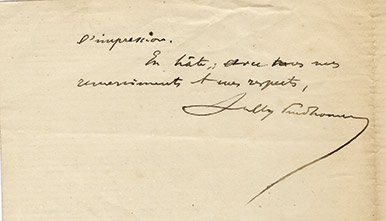 d'impression.
En hâte, avec tous mes
remerciments & mes respects,
Sully Prudhomme